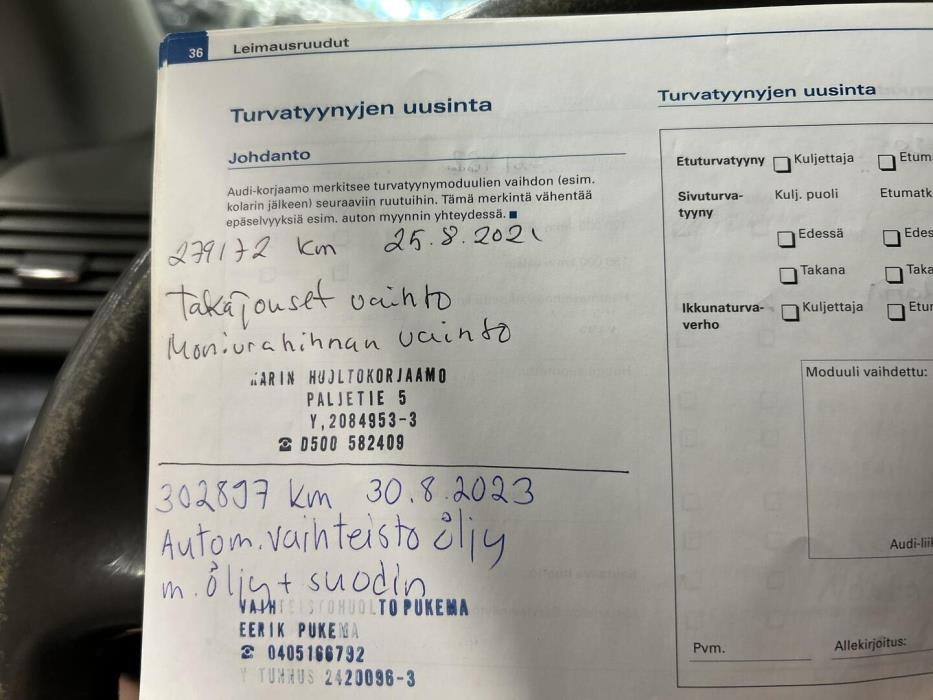 36 Leimausruudut
Turvatyynyjen uusinta
Johdanto
Audi-korjaamo merkitsee turvatyynymoduulien vaihdon (esim.
kolarin jälkeen) seuraaviin ruutuihin. Tämä merkintä vähentää
epäselvyyksiä esim. auton myynnin yhteydessä.
279172 km 25.8.2021
Takajouset vaihto
Moniurahihnan vaihto
KARIN HUOLTOKORJAAMO
PALJETIE 5
Y,2084953-3
☎ 0500 582409
302897 km 30.8.2023
Autom.vaihteisto öljy
m. öljy + suodin
VAIHTEISTOHUOLTO PUKEMA
EERIK PUKEMA
☎ 0405166792
Y TUNNUS 2420096-3
Turvatyynyjen uusinta
Etuturvatyyny Kuljettaja Etum
Sivuturva- Kulj. puoli Etumatk
tyyny
Edessä Edes
Takana Taka
Ikkunaturva- Kuljettaja Etur
verho
Moduuli vaihdettu:
Audi-liik
Pvm. Allekirjoitus: